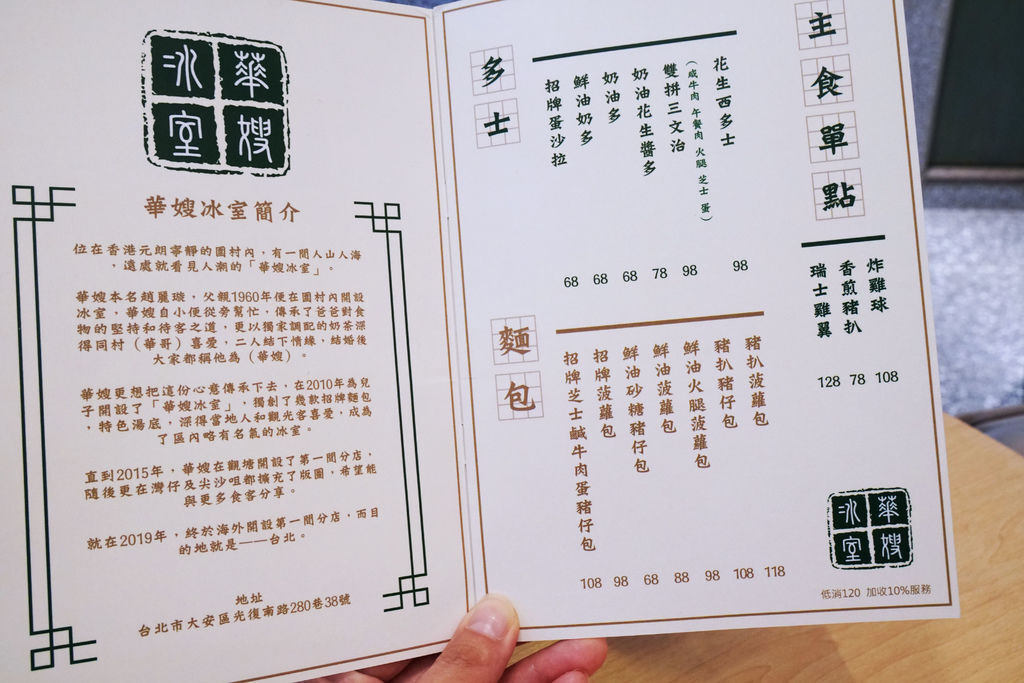 華嫂
冰室
華嫂冰室簡介
位在香港元朗寧靜的圍村內，有一間人山人海
，遠處就看見人潮的「華嫂冰室」。
華嫂本名趙麗璇，父親1960年便在圍村內開設
冰室，華嫂自小便從旁幫忙，傳承了爸爸對食
物的堅持和待客之道，更以獨家調配的奶茶深
得同村（華哥）喜愛，二人結下情緣，結婚後
大家都稱他為（華嫂）。
華嫂更想把這份心意傳承下去，在2010年為兒
子開設了「華嫂冰室」，獨創了幾款招牌麵包
，特色湯底，深得當地人和觀光客喜愛，成為
了區內略有名氣的冰室。
直到2015年，華嫂在觀塘開設了第一間分店，
隨後更在灣仔及尖沙咀都擴充了版圖，希望能
與更多食客分享。
就在2019年，終於海外開設第一間分店，而目
的地就是——台北。
地址
台北市大安區光復南路280巷38號
主食單點
炸雞球
香煎豬扒
瑞士雞翼
128 78 108
多士
花生西多士
（咸牛肉 午餐肉 火腿 芝士 蛋）
雙拼三文治
奶油花生醬多
奶油多
鮮油奶多
招牌蛋沙拉
68 68 68 78 98 98
麵包
豬扒菠蘿包
豬扒豬仔包
鮮油火腿菠蘿包
鮮油菠蘿包
鮮油砂糖豬仔包
招牌菠蘿包
招牌芝士鹹牛肉蛋豬仔包
108 98 68 88 98 108 118
華嫂
冰室
低消120 加收10%服務